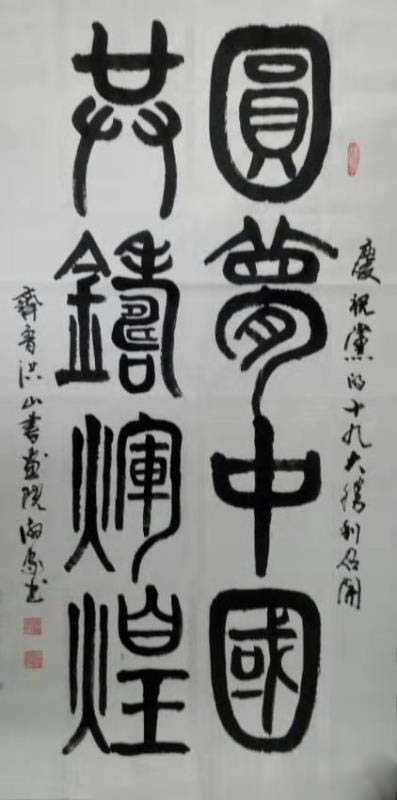 慶祝黨的十九大勝利召開
圓夢中國
共鑄輝煌
齊魯洪山書畫院